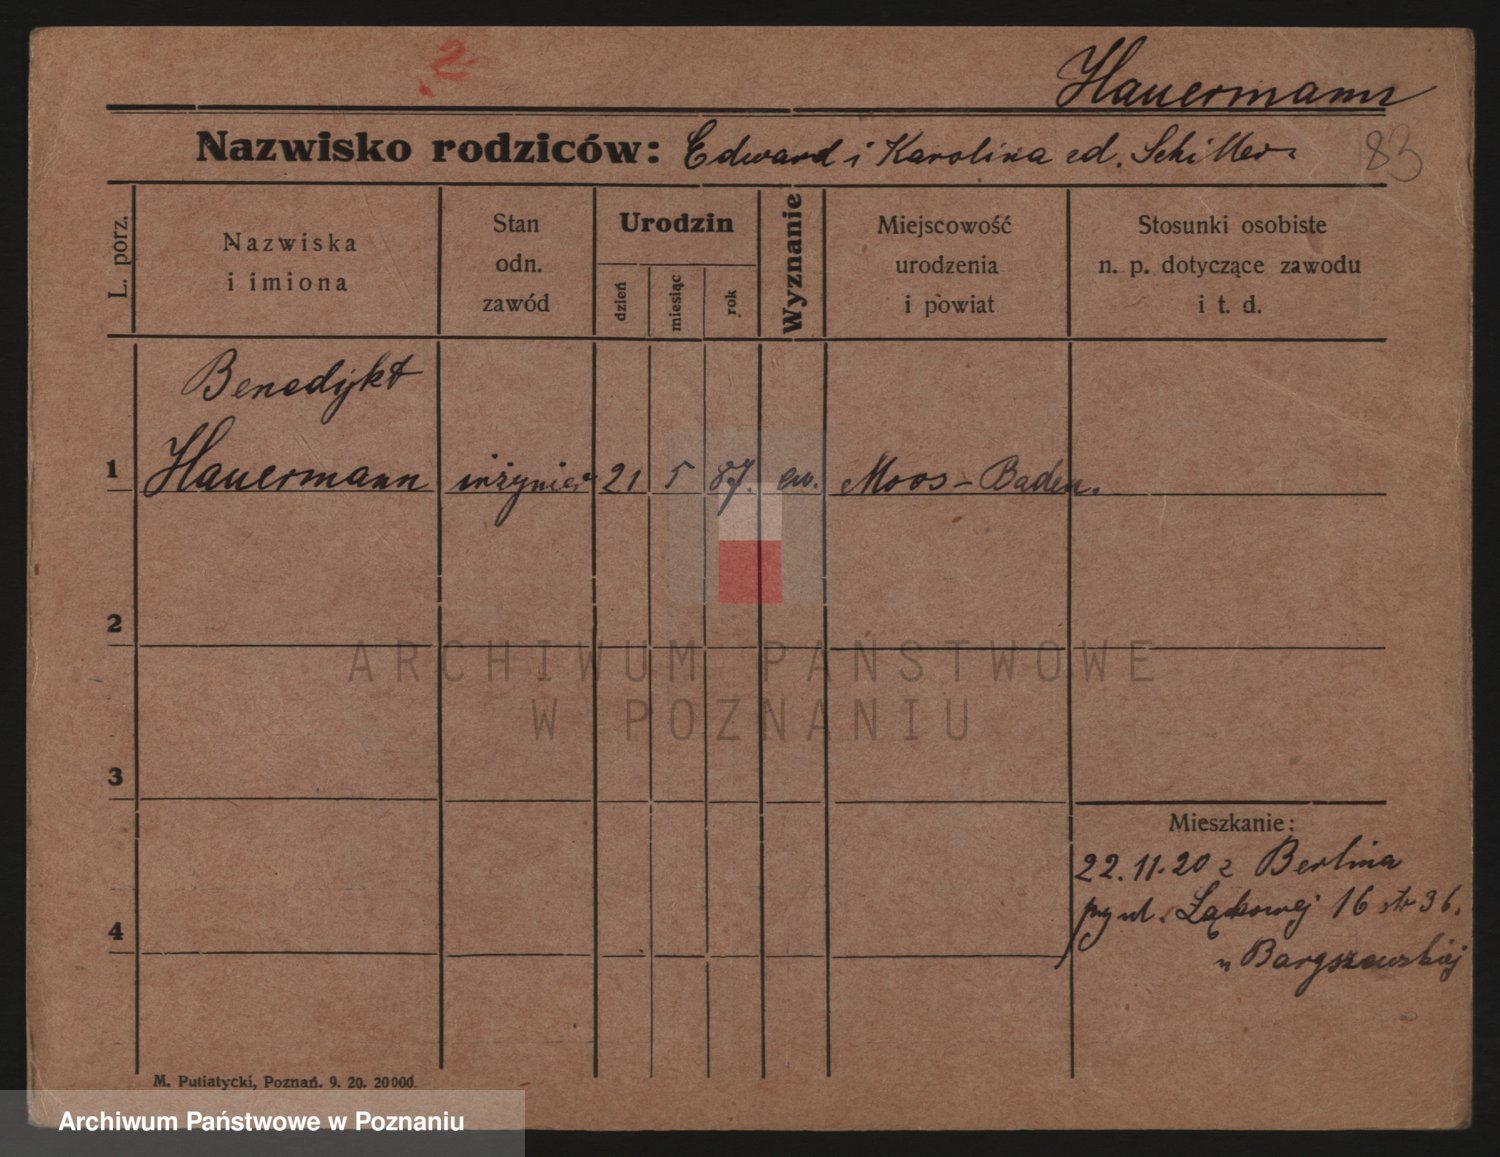 2
Hauermann
Nazwisko rodziców: Edward i Karolina ed. Schiller.
83
L. porz.
Nazwiska
i imiona
Stan
odn.
zawód
Urodzin
dzień
miesiąc
rok
Wyznanie
Miejscowość
urodzenia
i powiat
Stosunki osobiste
n. p. dotyczące zawodu
i t. d.
Benedykt
1 Hauermann inżynier 21 5 87. ew. Moos - Baden.
2
ARCHIWUM PAŃSTWOWE
W POZNANIU
3
Mieszkanie:
22.11.20 z Berlina
py ul. Łąkowej 16 str 36.
4
u Bargszewskiej
M. Putiatycki, Poznań. 9. 20. 20000.
Archiwum Państwowe w Poznaniu